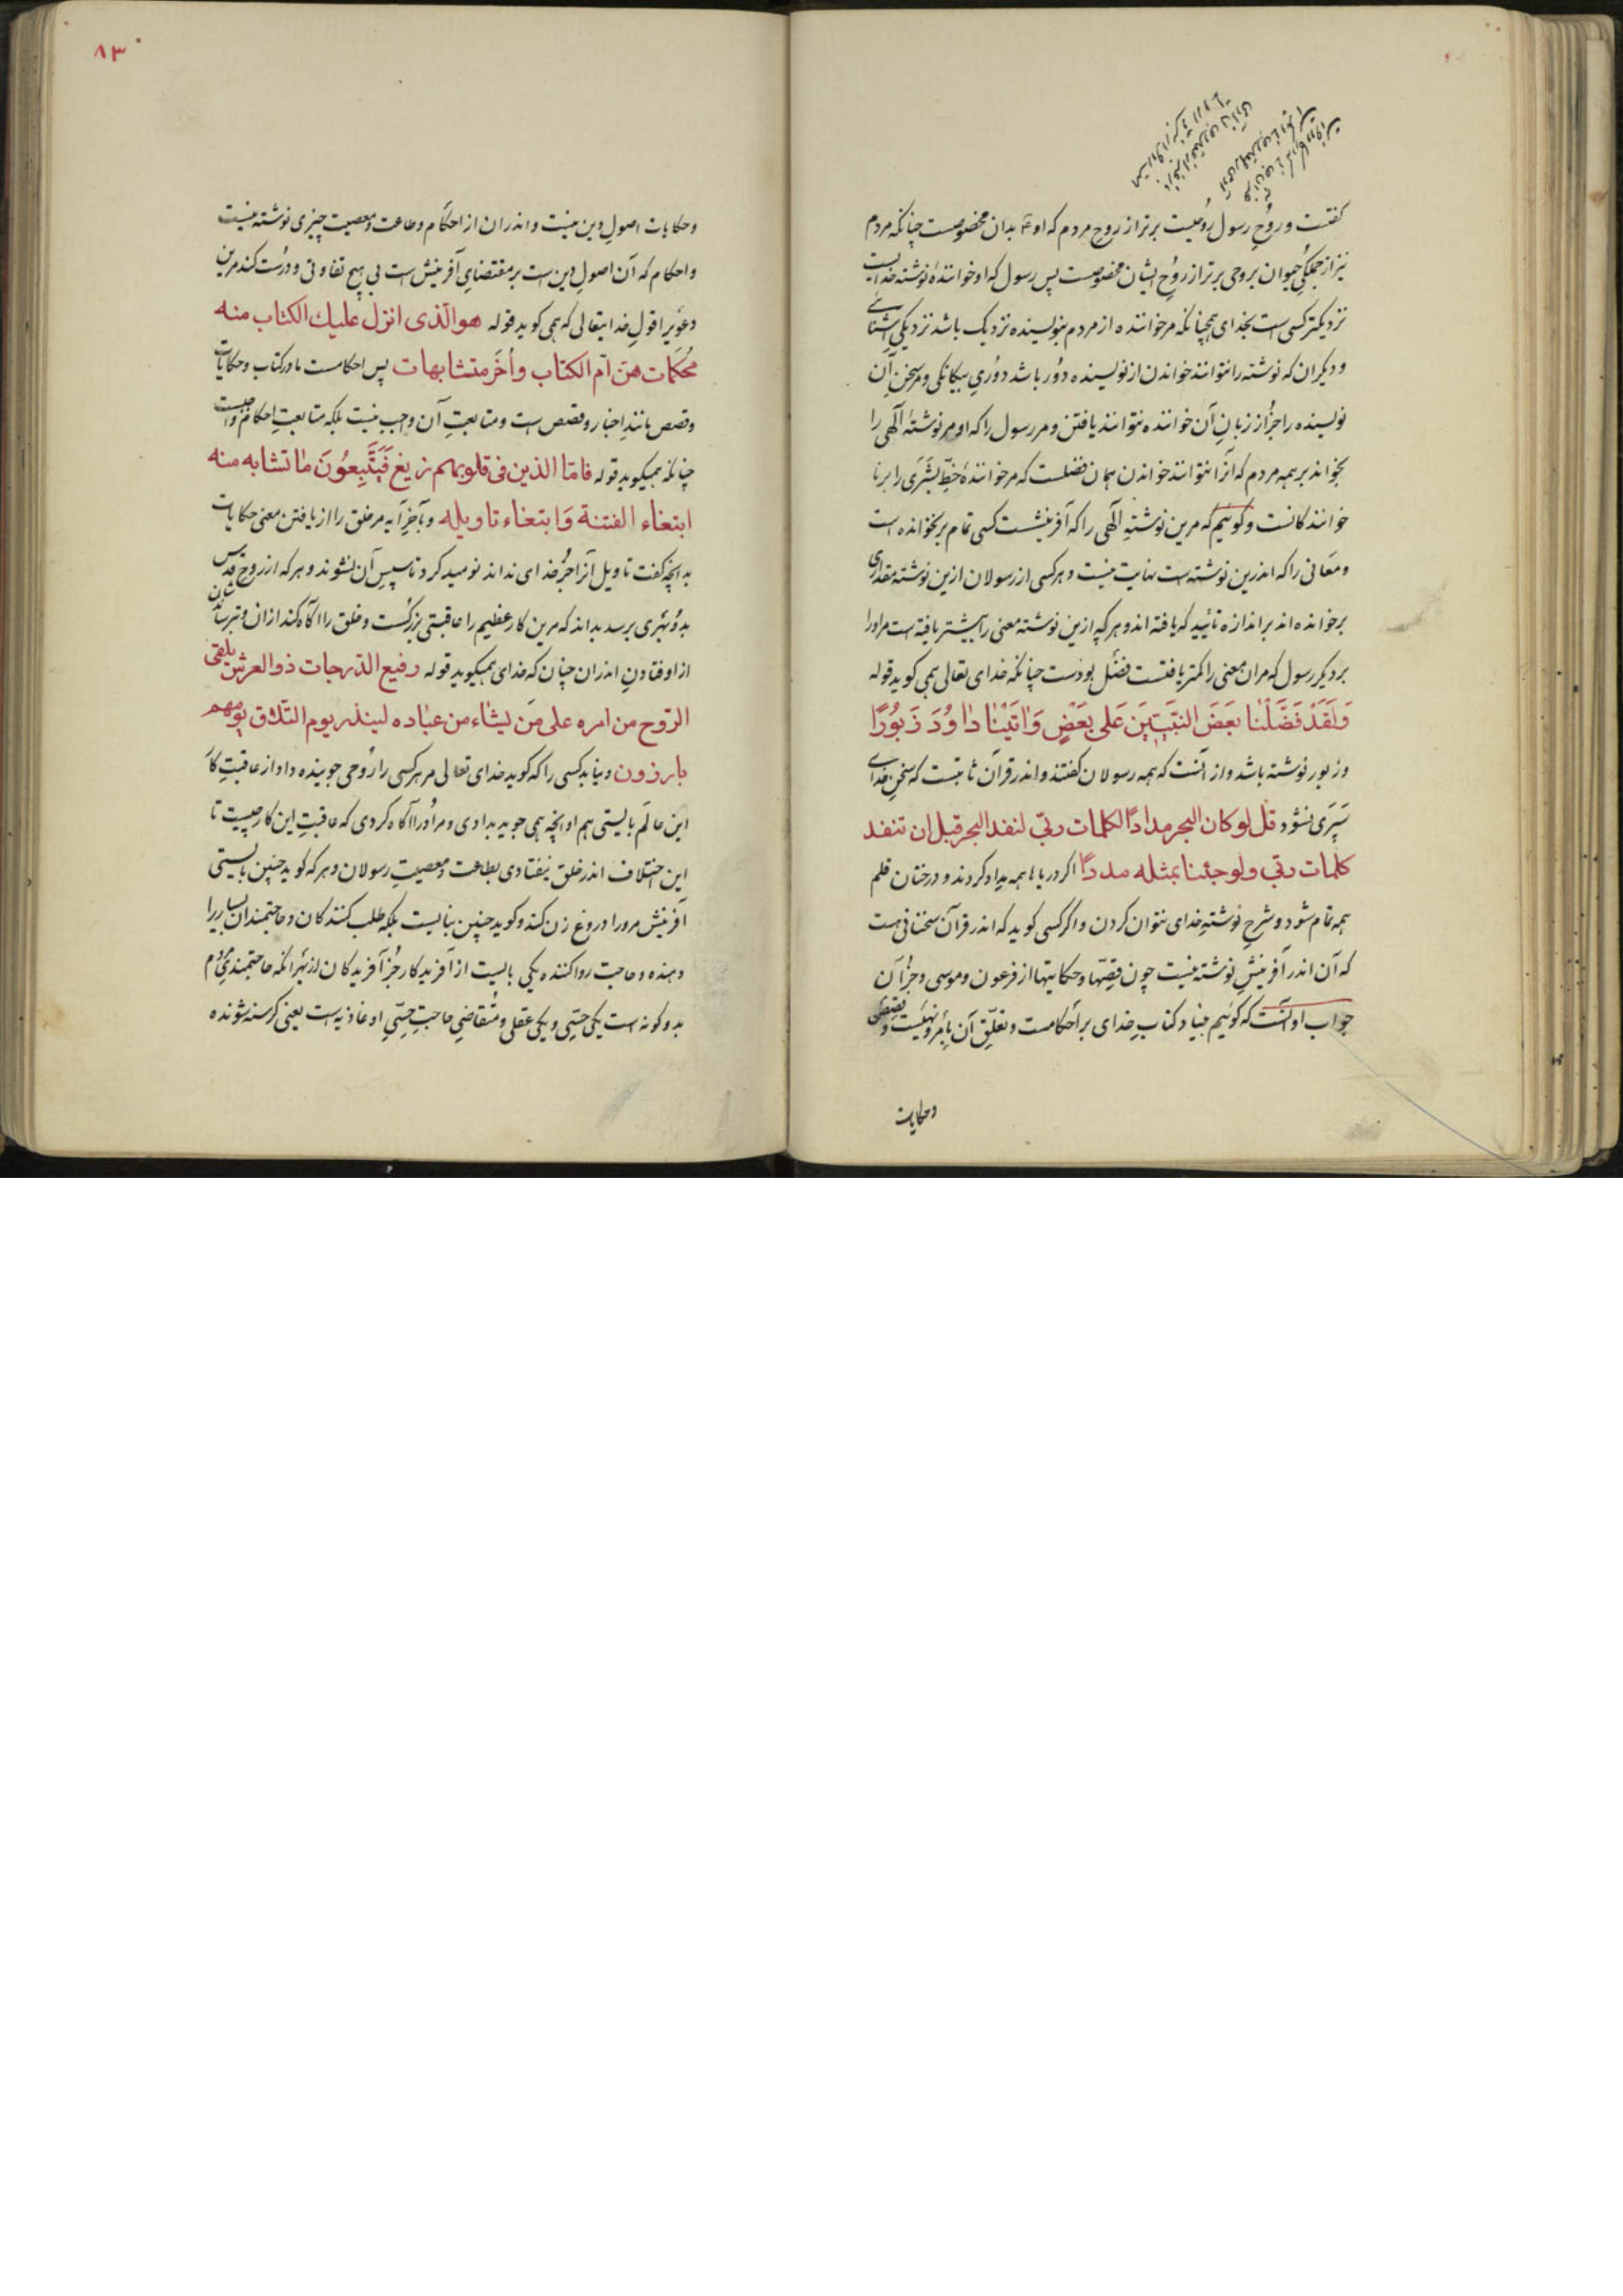 گفتست و روح رسول روحیست برتر از روح مردم که او بدان مخصوصست چنانکه مردم
نیز از جملگی حیوان بروحی برتر از روح ایشان مخصوصست پس رسول که او خوانندهٔ نوشته خدایست
نزدیکتر کسی است بخدای همچنانکه مر خواننده از مردم بنویسنده نزدیک باشد نزدیکی اشنائی
و دیگران که نوشته را نتوانند خواندن از نویسنده دور باشد دوری بیگانگی و مر سخن آن
نویسنده را جز از زبان آن خواننده نتوانند یافتن و مر رسول را که او مر نوشتهٔ الٓهی را
بخواند بر همه مردم که آنرا نتوانند خواندن همان فضلست که مر خوانندهٔ خط بشری را بر نا
خوانندگانست و گوئیم که مرین نوشتهٔ الٓهی را که آفرینشست کسی تمام بر نخوانده است
و معانی را که اندرین نوشته است نهایت نیست و هر کسی از رسولان ازین نوشته مقداری
برخوانده اند بر اندازه تأیید که یافته اند و هر که ازین نوشته معنی را بیشتر یافته است مر او را
بر دیگر رسول که مران معنی را کمتر یافتست فضل بودست چنانکه خدای تعالی همی کوید قوله
وَلَقَدْ فَضَّلْنَا بَعْضَ النَّبِيِّينَ عَلى بَعْضٍ وَاتَيْنا داوُدَ زَبُورًا
و زبور نوشته باشد و از آنست که همه رسولان گفتند و اندر قرآن ثابتست که سخن خدای
سپری نشود قل لو کان البحر مدادًا لکلمات ربّی لنفد البحر قبل ان تنفد
کلمات ربّی ولو جئنا بمثله مددًا اگر دریاها همه مداد کردند و درختان قلم
همه تمام شود و شرح نوشتهٔ خدای نتوان کردن و اگر کسی گوید که اندر قرآن سخنانی هست
که آن اندر آفرینش نوشته نیست چون قصّها و حکایتها از فرعون و موسی و جز آن
جواب او آنست که گوئیم بنیاد کتاب خدای بر احکامست و تعلّق آن بأمر و نهیست و قصص
وحکایات
۸۳
و حکایات اصول دین نیست و اندران از احکام و طاعت و معصیت چیزی نوشته نیست
و احکام که آن اصول دین است بر مقتضای آفرینش است بی هیچ تفاوتی و درست کند مرین
دعوی را قول خدایتعالی که همی کوید قوله هو الّذی انزل علیك الکتاب منه
محکمات هنّ امّ الکتاب وأخَر متشابهات پس احکامست مادر کتاب و حکایات
و قصص مانند اخبار و قصص است و متابعت آن واجب نیست بلکه متابعت احکام واجبست
چنانکه همیگوید قوله فامّا الذین فی قلوبهم زیغ فَيَتَّبِعُونَ ما تشابه منه
ابتغاء الفتنة وَابتغاء تاویله و بآخر آیه مر خلق را از یافتن معنی حکایات
بدانچه گفت تاویل آنرا جز خدای نداند نومید کرد تا سپس آن نشوند و هر که از روح قدس
بدو بهری برسد بداند که مرین کار عظیم را عاقبتی بزرگست و خلق را آگاه کند ازان و بترساندشان
از اوفتادن اندران چنان که خدای همیگوید قوله رفیع الدّرجات ذو العرش یلقی
الرّوح من امره علی مَن یشاء من عباده لینذر یوم التّلاق یوم هم
بارزون و نباید کسی را که گوید خدای تعالی مر هر کسی را روحی جوینده داد از عاقبت کار
این عالم بایستی هم او آنچه همی جوید بدادی و مر او را آگاه کردی که عاقبت این کار چیست تا
این اختلاف اندر خلق نیفتادی بطاعت و معصیت رسولان و هر که گوید چنین بایستی
آفرینش مرورا دروغ زن کند و گوید چنین نبایست بلکه طلب کنندگان و حاجتمندان بسیار را
دهنده و حاجت روا کننده یکی بایست از آفریدگار جز آفریدگان از بهر آنکه حاجتمندی مردم
بدو گونه است یکی حسّی و یکی عقلی و متقاضی حاجت حسّی او غاذیه است یعنی گرسنه شونده